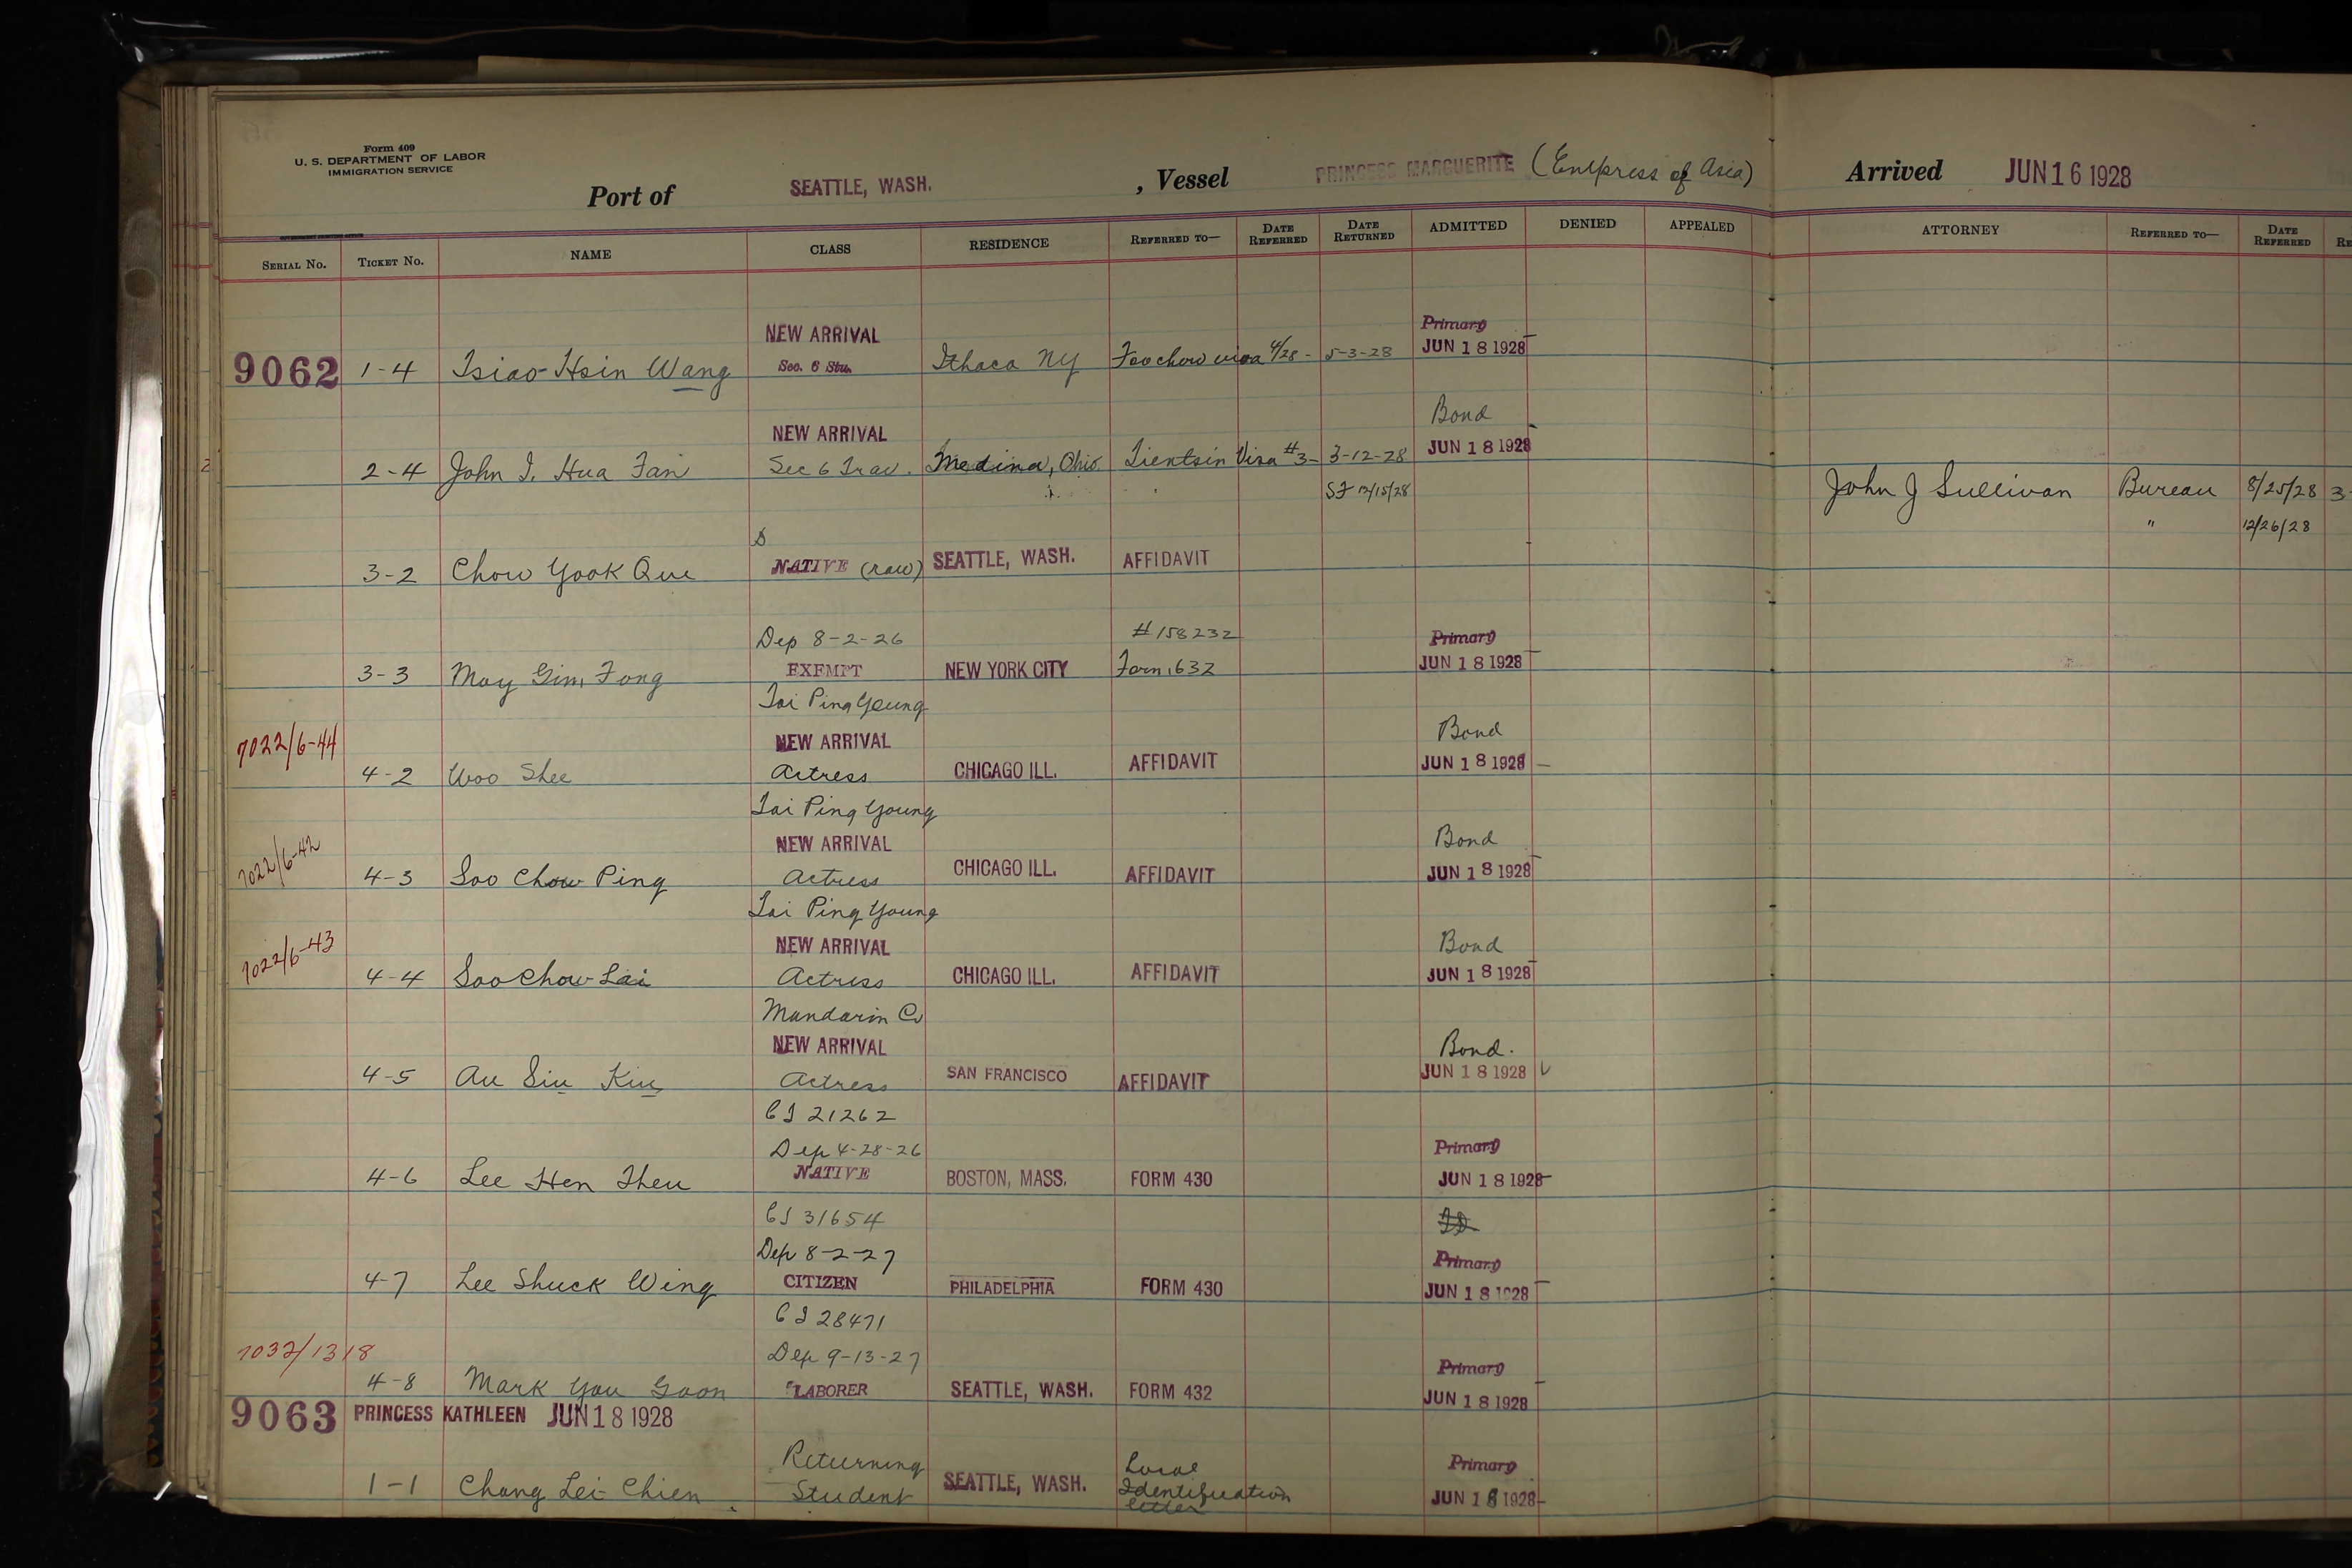 Form 409
U. S. DEPARTMENT OF LABOR
IMMIGRATION SERVICE
Port of SEATTLE, WASH. , Vessel PRINCESS MARGUERITE (Empress of Asia) Arrived JUN 16 1928
SERIAL NO. TICKET NO. NAME CLASS RESIDENCE REFERRED TO— DATE REFERRED DATE RETURNED ADMITTED DENIED APPEALED ATTORNEY REFERRED TO— DATE REFERRED
NEW ARRIVAL Primary
9062 1-4 Tsiao-Hsin Wang Sec. 6 Stu. Ithaca NY Foochow visa 4/28- 5-3-28 JUN 18 1928
NEW ARRIVAL Bond
2-4 John I. Hua Fan Sec 6 Trav. Medina, Ohio Tientsin Visa #3- 3-12-28 JUN 18 1928
SF 12/15/28 John J Sullivan Bureau 8/25/28 3-
" 12/26/28
S
3-2 Chow Yook Que NATIVE (raw) SEATTLE, WASH. AFFIDAVIT
Dep 8-2-26 #158232 Primary
3-3 Moy Gim Fong EXEMPT NEW YORK CITY Form 632 JUN 18 1928
Tai Ping Yeung
7022/6-44 NEW ARRIVAL Bond
4-2 Woo Shee Actress CHICAGO ILL. AFFIDAVIT JUN 18 1928
Tai Ping Young
7022/6-42 NEW ARRIVAL Bond
4-3 Soo Chow Ping Actress CHICAGO ILL. AFFIDAVIT JUN 18 1928
Tai Ping Young
7022/6-43 NEW ARRIVAL Bond
4-4 Soo Chow Lai Actress CHICAGO ILL. AFFIDAVIT JUN 18 1928
Mandarin Co
NEW ARRIVAL Bond.
4-5 Au Siu Kiu Actress SAN FRANCISCO AFFIDAVIT JUN 18 1928
CI 21262
Dep 4-28-26 Primary
4-6 Lee Hen Theu NATIVE BOSTON, MASS. FORM 430 JUN 18 1928
CI 31654
Dep 8-2-27 Primary
4-7 Lee Shuck Wing CITIZEN PHILADELPHIA FORM 430 JUN 18 1928
CI 28471
7032/1318 Dep 9-13-27 Primary
4-8 Mark You Goon LABORER SEATTLE, WASH. FORM 432 JUN 18 1928
9063 PRINCESS KATHLEEN JUN 18 1928
Returning Local Primary
1-1 Chang Lei-Chien Student SEATTLE, WASH. Identification letter JUN 18 1928